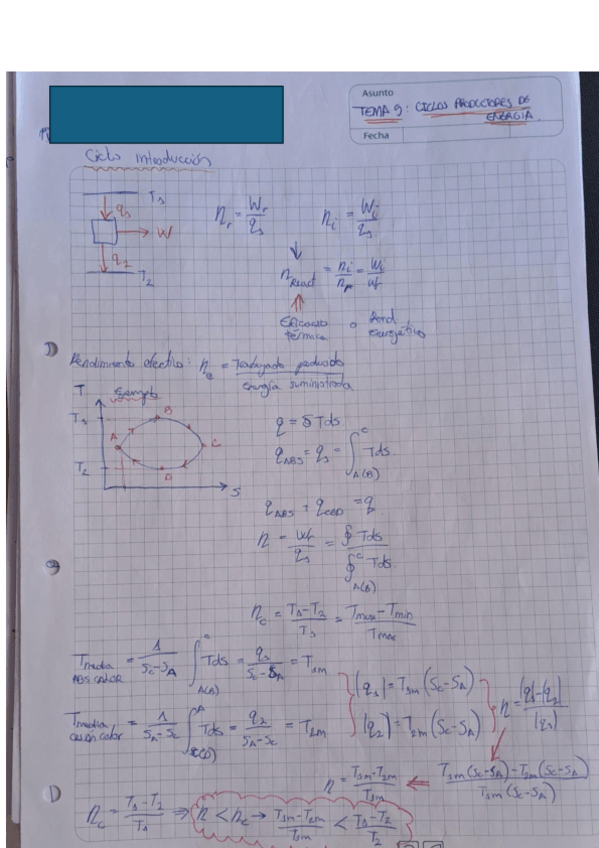 Asunto
TEMA 9: CICLOS PRODUCTORES DE ENERGIA.
Fecha
Ciclo introducción
T₁
q₁
W
q₂
T₂
η_r = W_r/q₁
η_i = W_i/q₁
η_React = η_i/η_r = W_i/W_r
Eficacia térmica o Rend exergético
Rendimiento efectivo: η_e = Trabajado producido / energía suministrada
T
Ejemplo
T₁
T₂
A
B
C
D
S
q = ∫Tds
q_ABS = q₁ = ∫_A(B)^C Tds
q_ABS + q_CED = q
η = W_r/q₁ = ∮Tds / ∮_A(B)^C Tds
η_c = (T₁-T₂)/T₁ = (Tmax-Tmin)/Tmax
Tmedia ABS CALOR = 1/(S_C-S_A) ∫_A(B)^C Tds = q₁/(S_C-S_A) = T₁m
|q₁| = T₁m (S_C-S_A)
η = (|q₁|-|q₂|)/|q₁|
Tmedia cesión calor = 1/(S_A-S_C) ∫_C(D)^A Tds = q₂/(S_A-S_C) = T₂m
|q₂| = T₂m (S_C-S_A)
η = (T₁m-T₂m)/T₁m ⇐ (T₁m(S_C-S_A)-T₂m(S_C-S_A))/(T₁m(S_C-S_A))
η_c = (T₁-T₂)/T₁ ⇒ η < η_c → (T₁m-T₂m)/T₁m < (T₁-T₂)/T₂